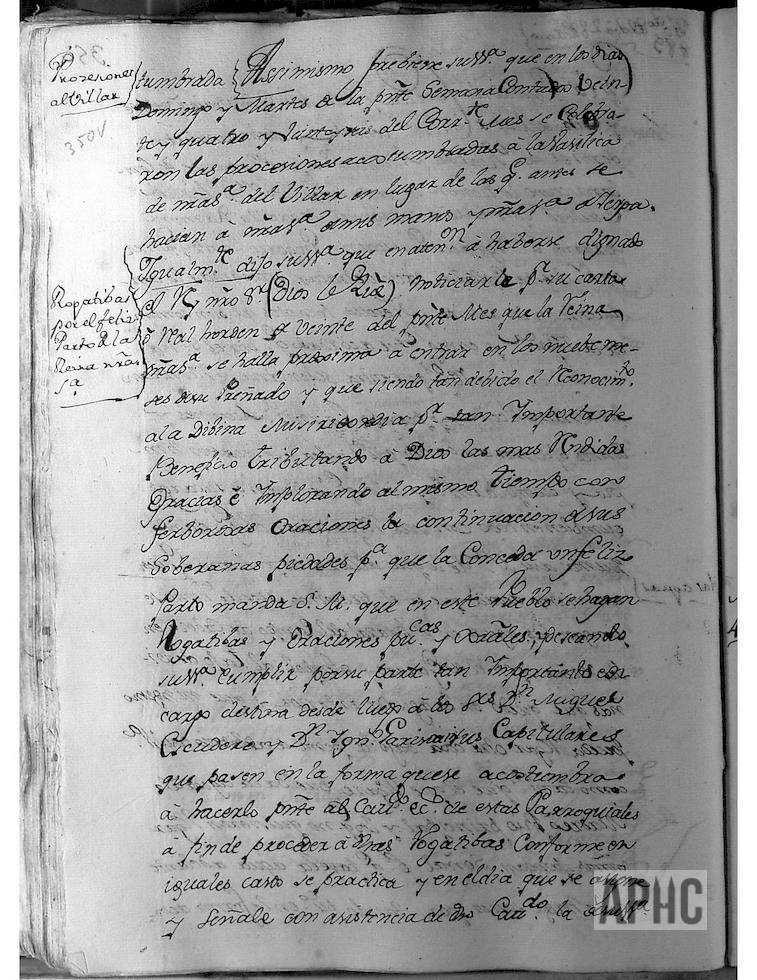 Prosesiones
al Villar
350V
tumbrada Assimismo prebiene su Sª. que en los dias
Domingo y Martes de la pñte Semana Contados Vein-
te y quatro y Veinte y seis del Corrte. Mes se Celebra-
ron las procesiones acostumbradas à la Vasilica
de nrãsª. del Villar en lugar de las q. antes se
hacian à nrãsª.
Rogatibas
por el feliz
Parto de la
Reina nrãa
sª
Igualmte. dijo su Sª que en atenon. à haberse dignado
el Ry nrõ Sr. (Dios le Gũe) noticiarle pr. su carta
ò Real horden de Veinte del pñte Mes que la Reina
nrãsª. se halla proxima à entrar en los nuebe me-
ses de su Preñado y que siendo tan debido el Rconocimto.
a la Dibina Misiricordia pr. tan Importante
Beneficio tributando à Dios las mas Rndidas
Gracias è Implorando al mismo tiempo con
ferborosas Oraciones la continuacion de sus
Soberanas piedades pª. que la Conceda un feliz
Parto manda S. M. que en este Pueblo se hagan
Rogatibas y Oraciones pucas y deseando
su Sª. Cumplir por su parte tan Importante en-
cargo destina desde luego à los Sres Dn. Miguel
Escudero y Dn Igno. sus Capitulares
que pasen en la forma que se acostumbra
à hacerlo pñte al Cavdo. ecco. de estas Parroquiales
a fin de proceder à dhas Rogatibas Conforme en
iguales casos se practica y en el dia que se asigne
y Señale con asistencia de dho Cavdo. la de su Sª
APHC